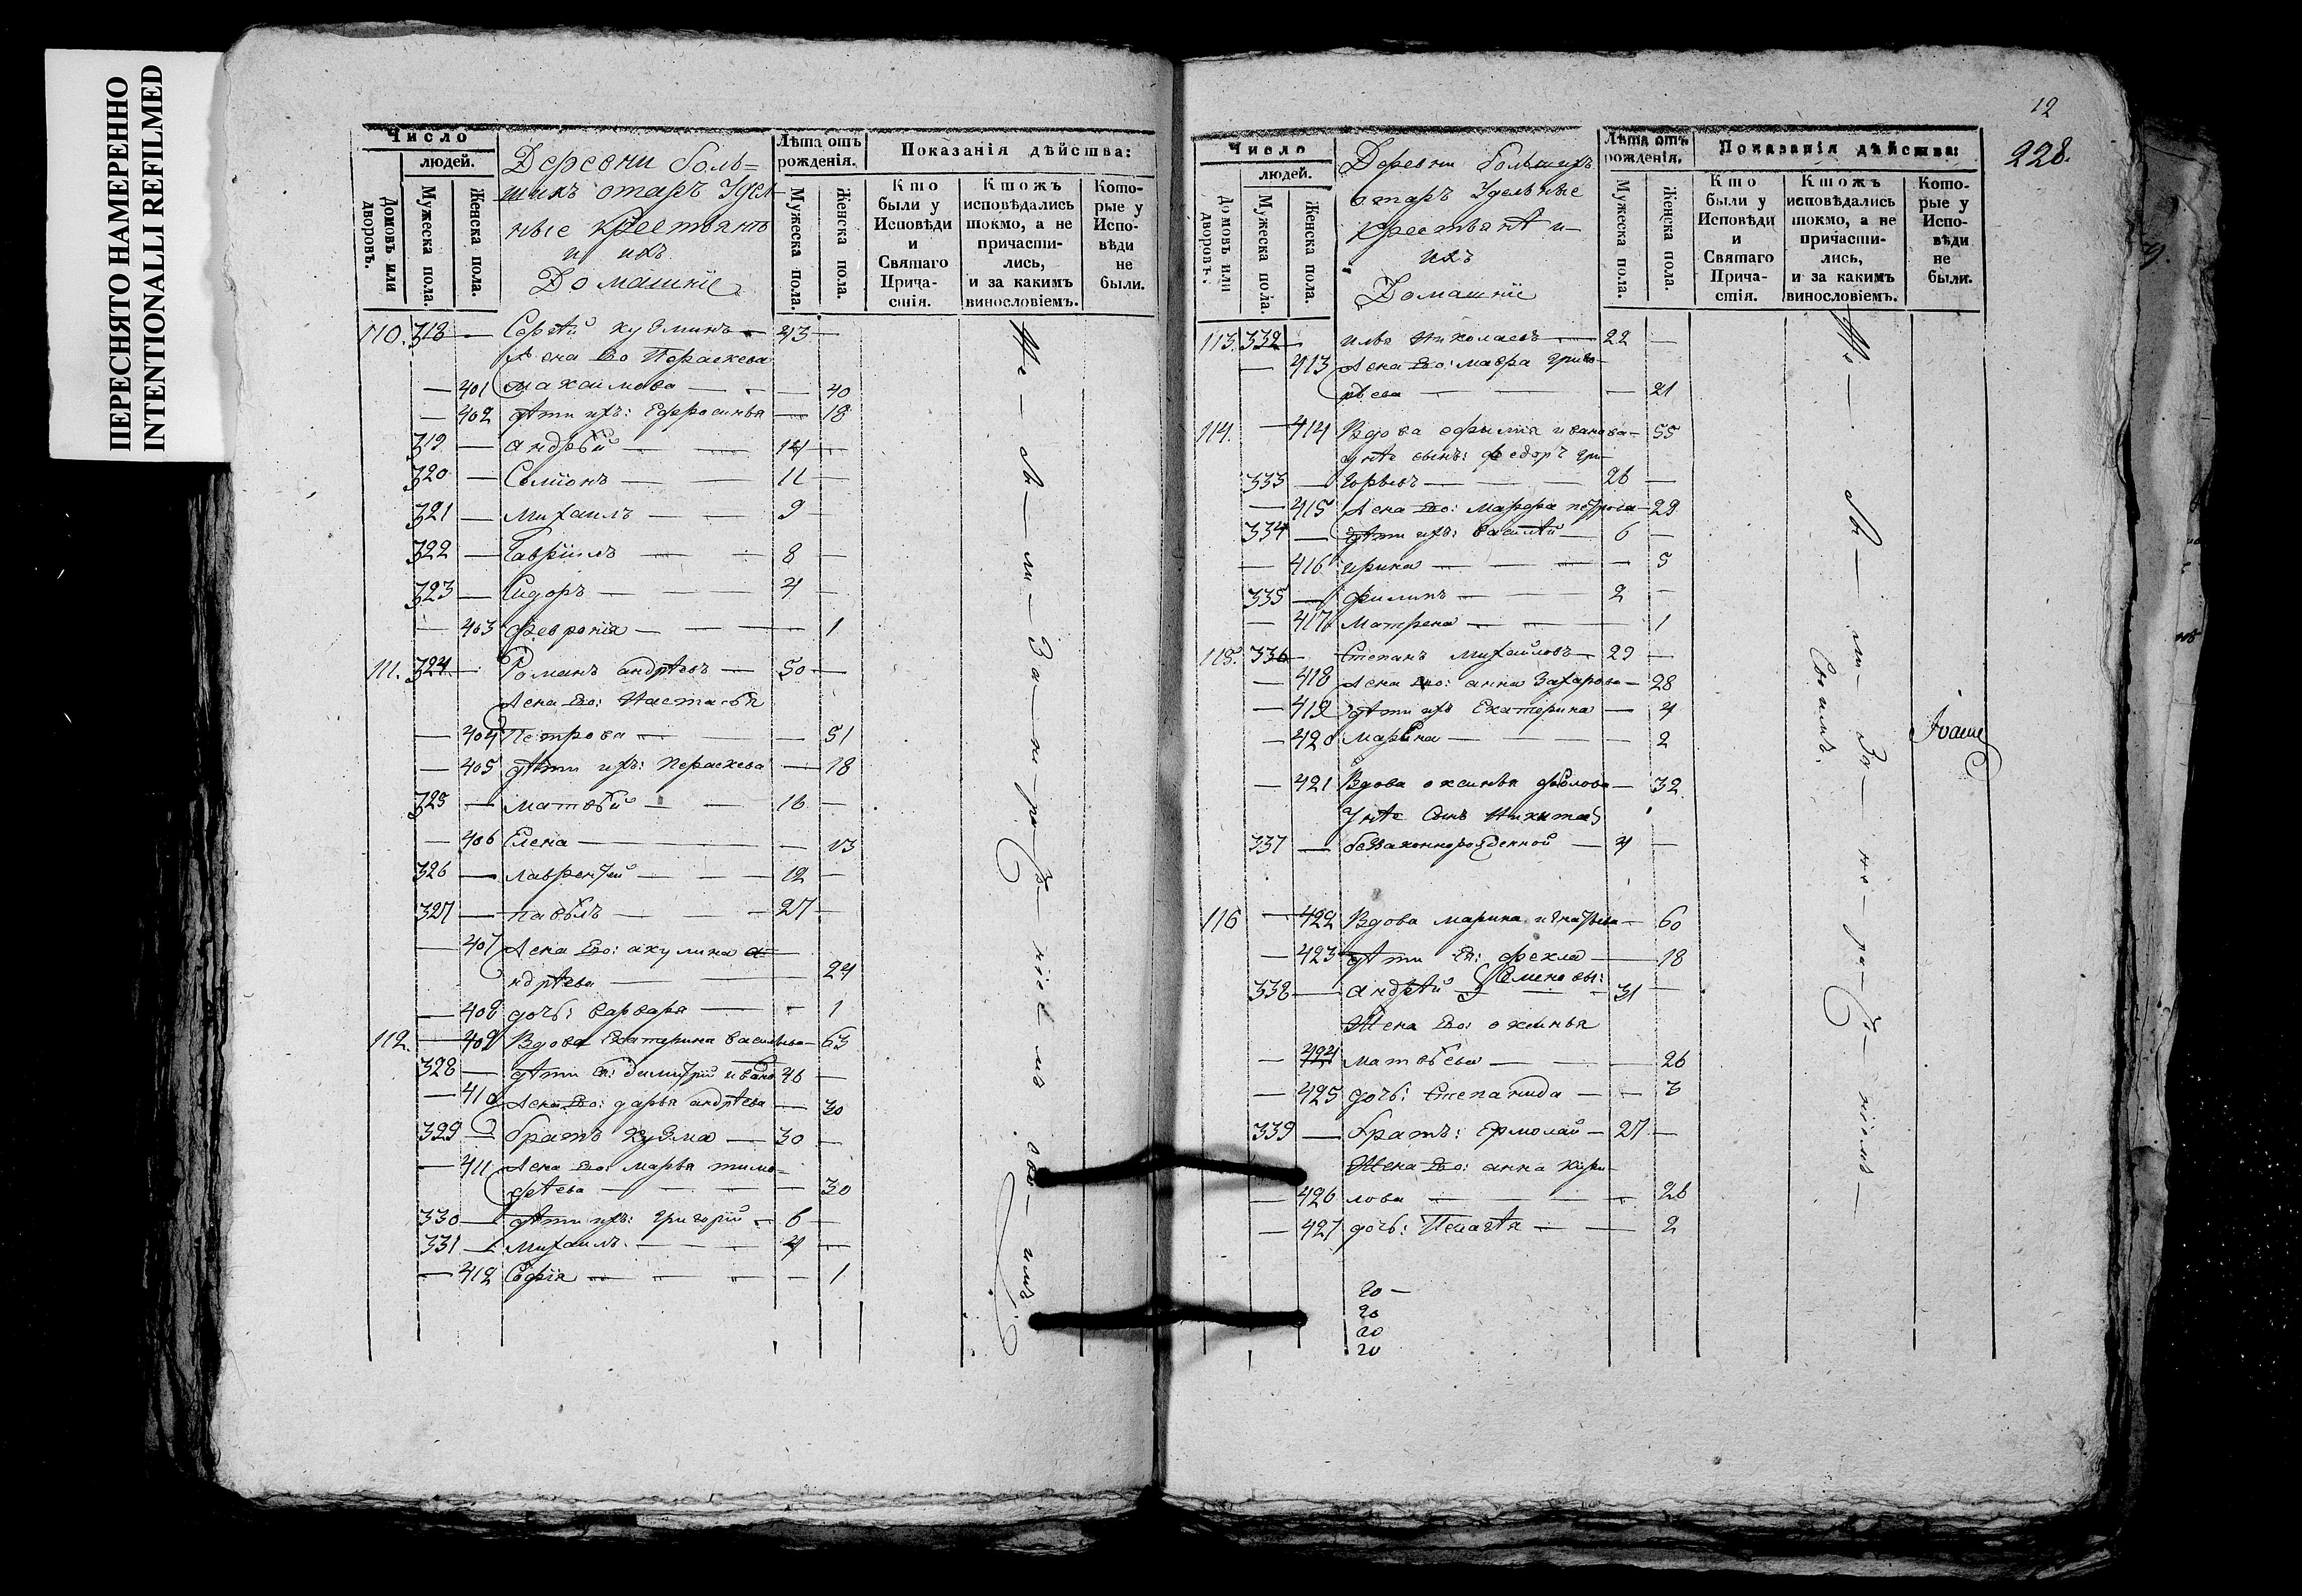 ПЕРЕСНЯТО НАМЕРЕННО
INTENTIONALLI REFILMED
Число
людей.
Домовъ или дворовъ.
Мужеска пола.
Женска пола.
Деревни боль=
шихъ отаръ Удел-
ные крестьянѣ
и ихъ
Домашніе
Лѣта отъ рожденія.
Мужеска пола.
Женска пола.
Показанія дѣйства:
Кто были у Исповѣди и Святаго Прича-стія.
Ктожъ исповѣдались токмо, а не причасти-лись, и за какимъ винословіемъ.
Кото-рые у Испо-вѣди не были.
110. 318 — Сергѣй кузминъ — 43 —
Жена Его Параскева
— 401 — 40
— 402 дѣти ихъ: Ефросинья — 18
319 — андрѣй — 14 —
320 — Симіонъ — 11 —
321 — Михаилъ — 9 —
322 — Гавріилъ — 8 —
323 — Сидоръ — 4 —
— 403 Февронія — 1
111. 324 — Романъ андрѣевъ — 50 —
Жена Его: Настасья
— 404 Петрова — 51
— 405 дѣти ихъ: Параскева — 18
325 — матвѣй — 16 —
— 406 Елена — 13
326 — лаврентий — 12 —
327 — павѣлъ — 27 —
— 407 Жена Его: акулина а-
ндрѣева — 24
— 408 дочь: варвара — 1
112. — 409 Вдова Екатерина васильева — 63
328 — дѣти Ея: димитрій ивано 46 —
— 410 Жена Его: дарья андрѣева — 30
329 — братъ Кузма — 30 —
— 411 Жена Его: марья тимо-
фѣева — 30
330 — дѣти ихъ: григорій — 6 —
331 — Михаилъ — 4 —
— 412 Софія — 1
12
228.
Число
людей.
Домовъ или дворовъ.
Мужеска пола.
Женска пола.
Деревни большихъ
отаръ Удельные
крестьянѣ и
ихъ
Домашніе
Лѣта отъ рожденія.
Мужеска пола.
Женска пола.
Показанія дѣйства:
Кто были у Исповѣди и Святаго Прича-стія.
Ктожъ исповѣдались токмо, а не причасти-лись, и за какимъ винословіемъ.
Кото-рые у Испо-вѣди не были.
113. 332 — илья николаевъ — 22 —
— 413 Жена Его: мавра григо-
рьева — 21
114. — 414 Вдова ефимія иванова — 55
у нѣе сынъ: федоръ гри-
333 — горьевъ — 26 —
— 415 Жена Его: марфа петрова — 29
334 — дѣти ихъ: василѣй — 6 —
— 416 ирина — 5
335 — филипъ — 2 —
— 417 Матрена — 1
115. 336 — Степанъ Михайловъ — 29 —
— 418 Жена Его: анна Захарова — 28
— 419 дѣти ихъ Екатерина — 4
— 420 Марина — 2
— 421 Вдова оксинья — 32
У нѣе Сынъ Никита
337 — беззаконнорожденной — 4 —
116 — 422 Вдова марина игнатьева — 60
— 423 дѣти Ея: фекла — 18
338 — андрѣй Семеновы: 31 —
Жена Его: оксинья
— 424 матвѣева — 26
— 425 дочь: Степанида — 3
339 — братъ: Ермолай — 27 —
Жена Его: анна кири-
— 426 лова — 26
— 427 дочь: Пелагѣя — 2
20 —
20
20
20